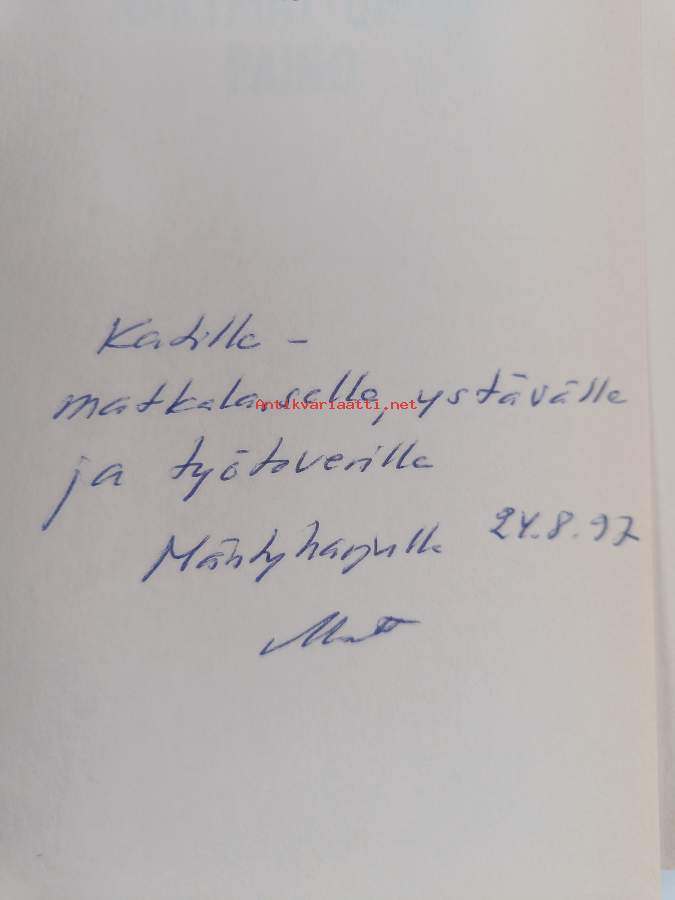 Katille –
matkalaiselle, ystävälle
Antikvariaatti.net
ja työtoverille
Mäntyharjulla 24.8.97